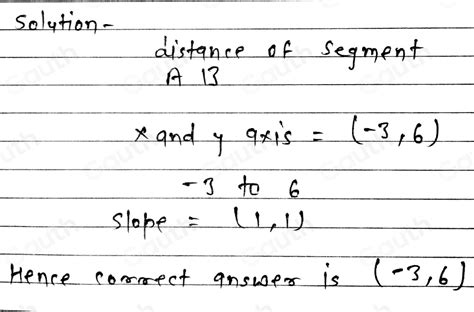 Solytion-
distance of segment
A B
x and y axis = (-3,6)
-3 to 6
slope = (1,1)
Hence correct answer is (-3,6)